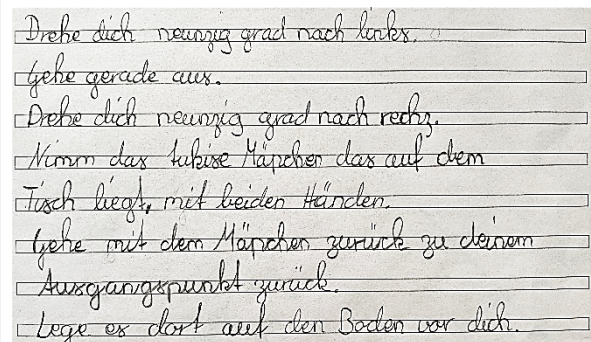 Drehe dich neunzig grad nach links.
Gehe gerade aus.
Drehe dich neunzig grad nach rechz.
Nimm das tukise Mäpchen das auf dem
Tisch liegt, mit beiden Händen.
Gehe mit dem Mäpchen zurück zu deinem
Ausgangspunkt zurück.
Lege es dort auf den Boden vor dich.